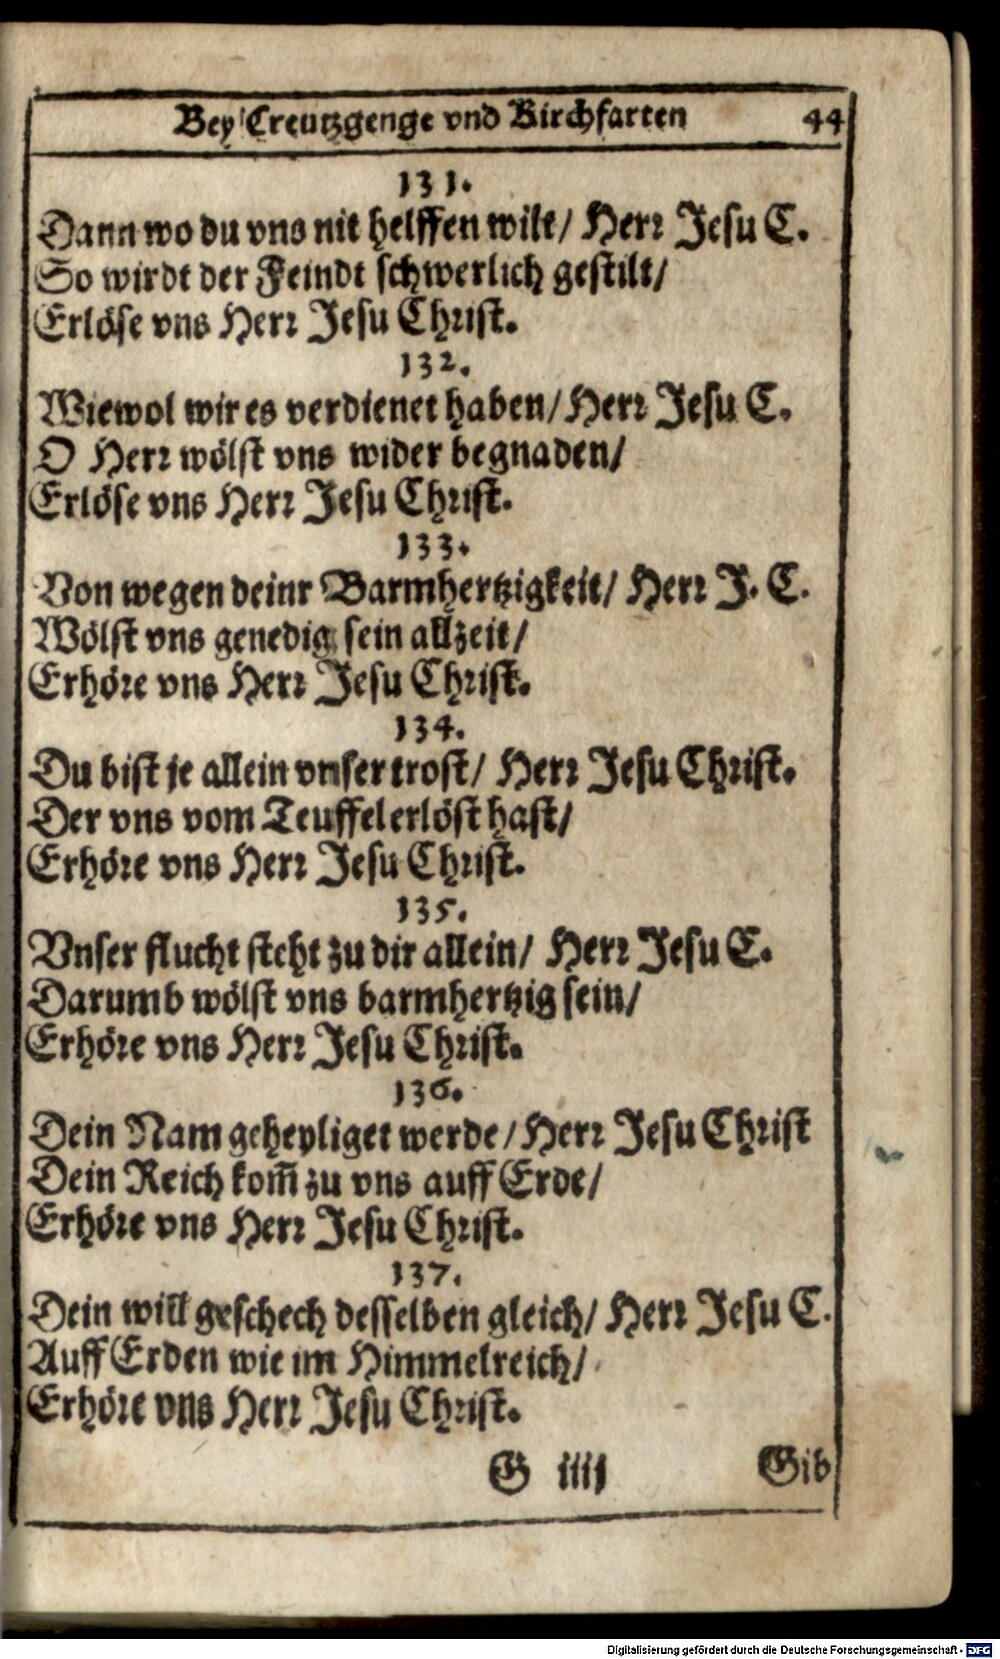 Bey Creutzgenge vnd Kirchfarten 44
131.
Dann wo du vns nit helffen wilt/ Herr Jesu C.
So wirdt der Feindt schwerlich gestilt/
Erlöse vns Herr Jesu Christ.
132.
Wiewol wir es verdienet haben/ Herr Jesu C.
O Herr wölst vns wider begnaden/
Erlöse vns Herr Jesu Christ.
133.
Von wegen deinr Barmhertzigkeit/ Herr J. C.
Wölst vns genedig sein allzeit/
Erhöre vns Herr Jesu Christ.
134.
Du bist je allein vnser trost/ Herr Jesu Christ.
Der vns vom Teuffel erlöst hast/
Erhöre vns Herr Jesu Christ.
135.
Vnser flucht steht zu dir allein/ Herr Jesu C.
Darumb wölst vns barmhertzig sein/
Erhöre vns Herr Jesu Christ.
136.
Dein Nam geheyliget werde/ Herr Jesu Christ
Dein Reich kom̃ zu vns auff Erde/
Erhöre vns Herr Jesu Christ.
137.
Dein will geschech desselben gleich/ Herr Jesu C.
Auff Erden wie im Himmelreich/
Erhöre vns Herr Jesu Christ.
G iiij Gib
Digitalisierung gefördert durch die Deutsche Forschungsgemeinschaft - DFG